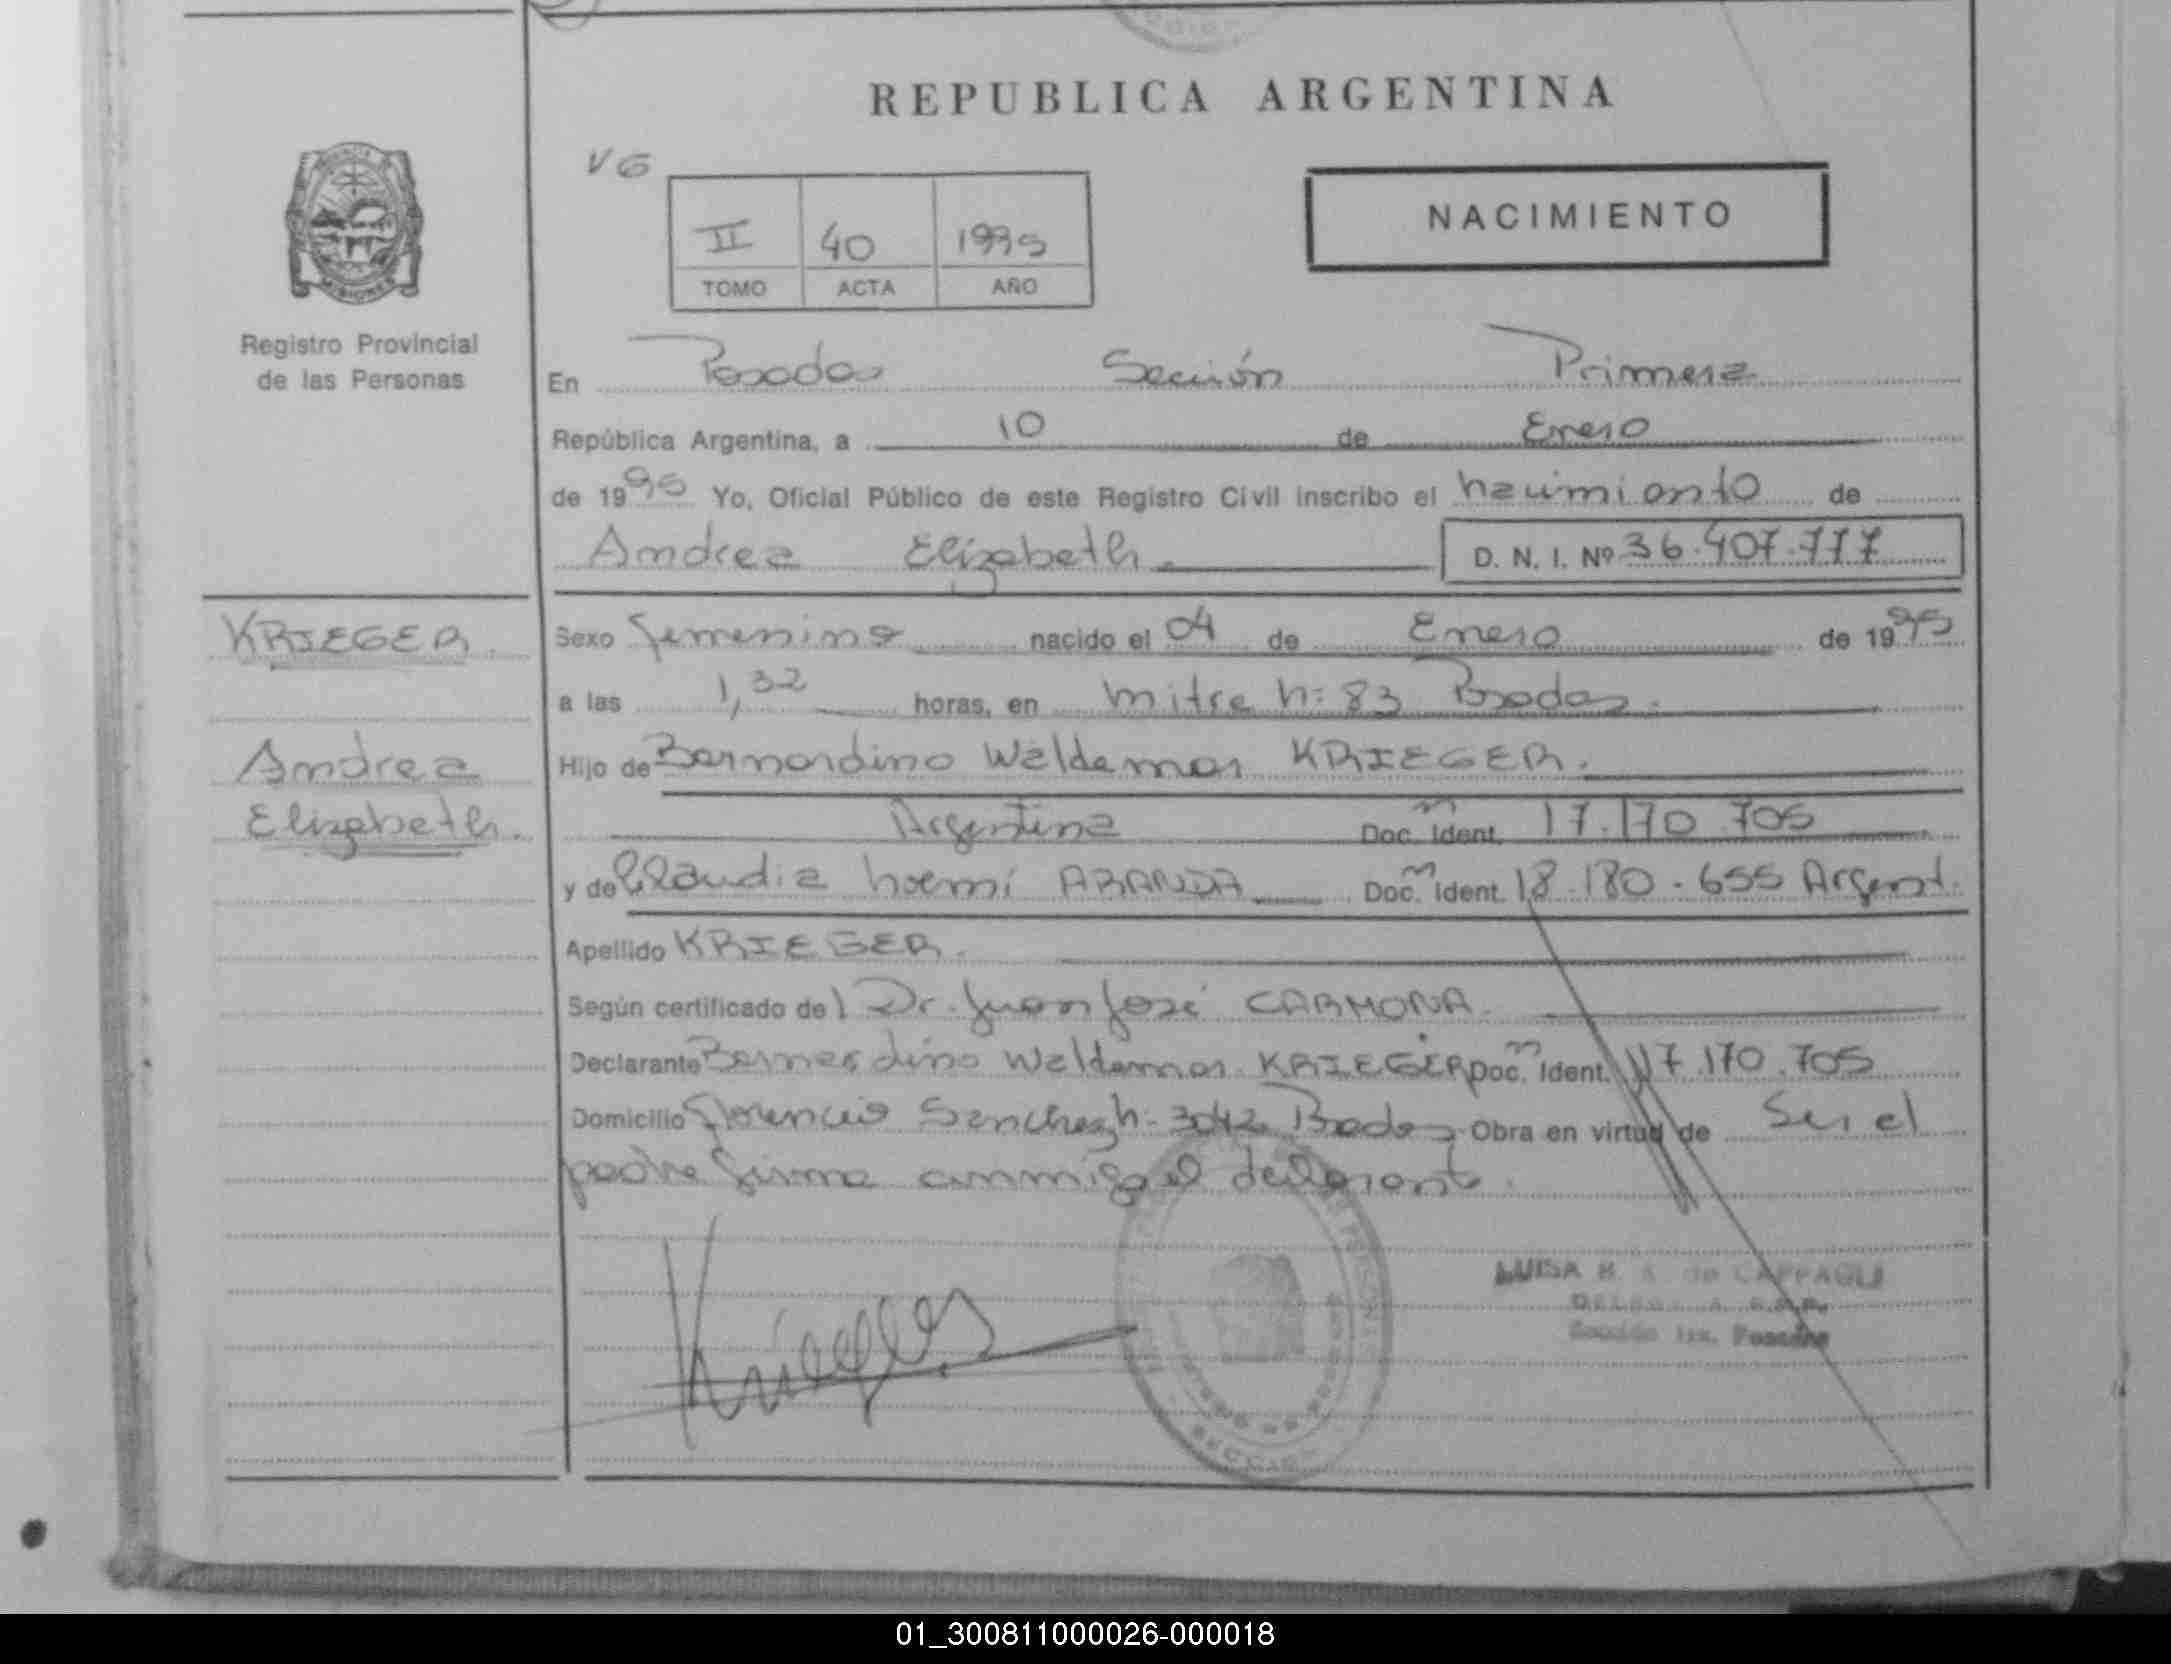 REPUBLICA ARGENTINA
VG
NACIMIENTO
II 40 1995
TOMO ACTA AÑO
MISIONES
Registro Provincial
de las Personas
En Posadas Sección Primera
República Argentina, a 10 de Enero
de 1995 Yo, Oficial Público de este Registro Civil inscribo el nacimiento de
Andrea Elizabeth. D. N. I. Nº 36.407.777
KRIEGER.
Sexo femenino nacido el 04 de Enero de 1995
a las 1,32 horas, en mitre n: 83 Posadas.
Andrea
Elizabeth.
Hijo de Bernardino Waldemar KRIEGER.
Argentina Doc. Ident. 17.170.705
y de Claudia noemí ARANDA Doc. Ident. 18.180.655 Argent.
Apellido KRIEGER.
Según certificado del Dr. Juan José CARMONA.
Declarante Bernardino Waldemar KRIEGER Doc. Ident. 17.170.705
Domicilio florencio Sanchez n: 3042 Posadas Obra en virtud de Ser el
padre firma conmigo el declarante.
LUISA de CAPPAGLI
Sección 1ra. Posadas
01_300811000026-000018